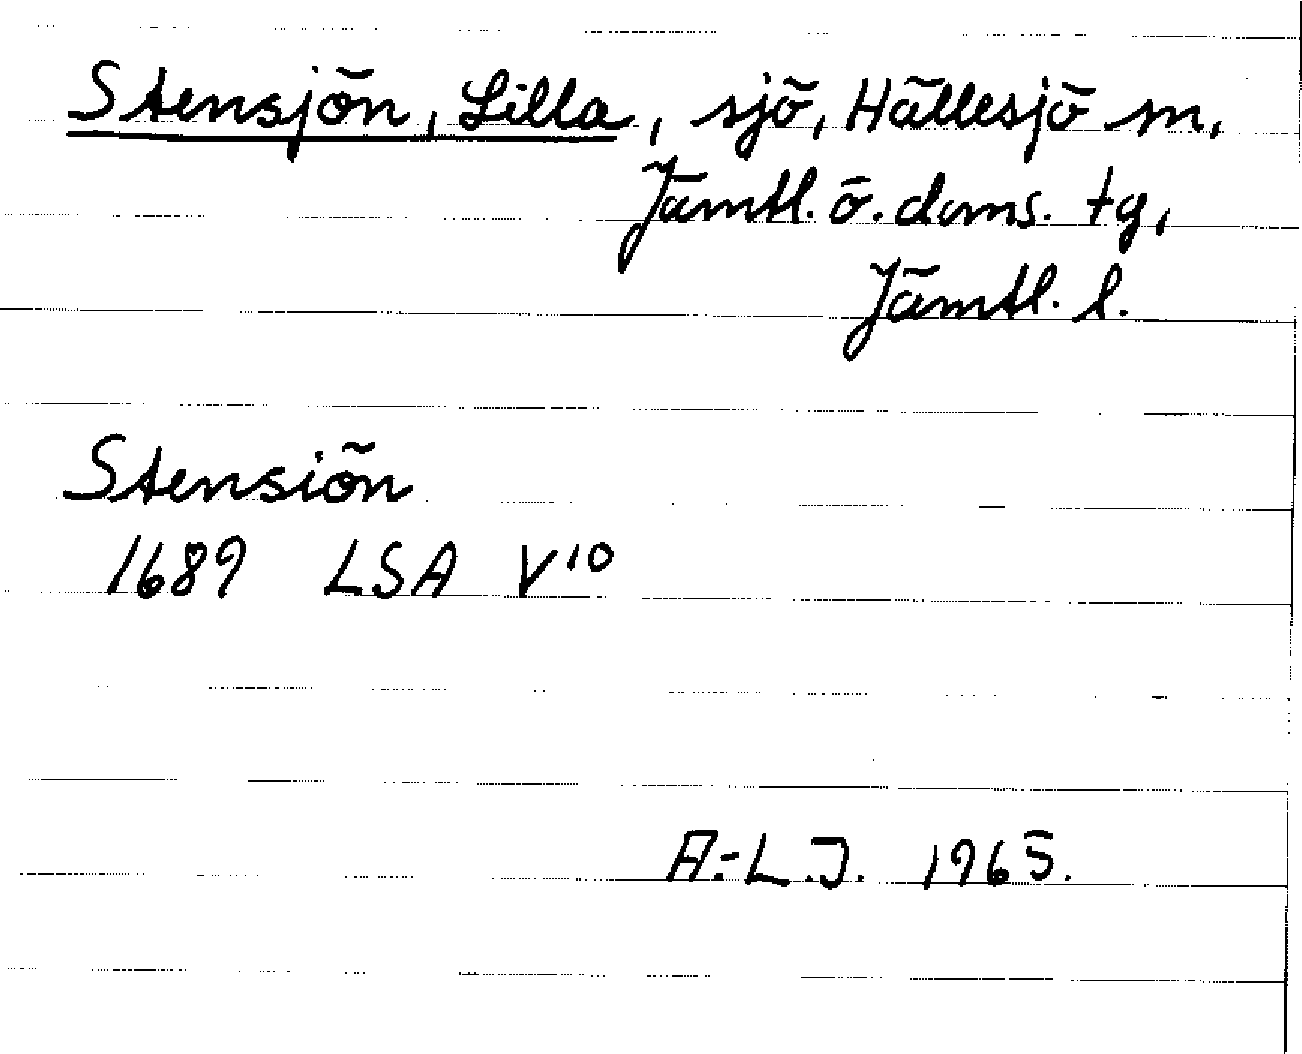 Stensjön, Lilla, sjö, Hällesjö sn,
Jämtl. ö. doms. tg,
Jämtl. l.
Stensiön
1689 LSA V10
A.-L.J. 1965.